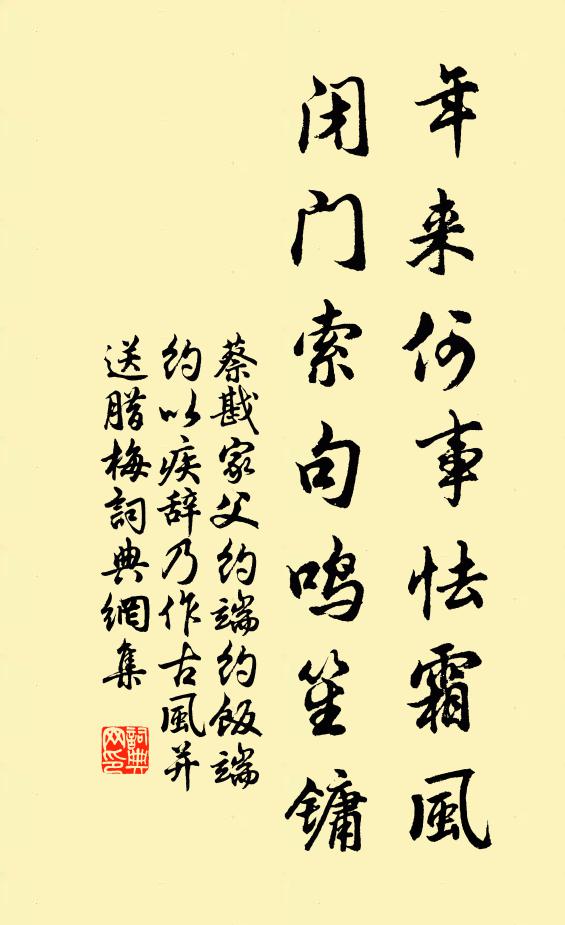 年来何事怯霜風
闭門索句鳴笙鏞
蔡戡家父约端约飯端
约以疾辞乃作古風并
送腊梅詞典網集
詞典
网印